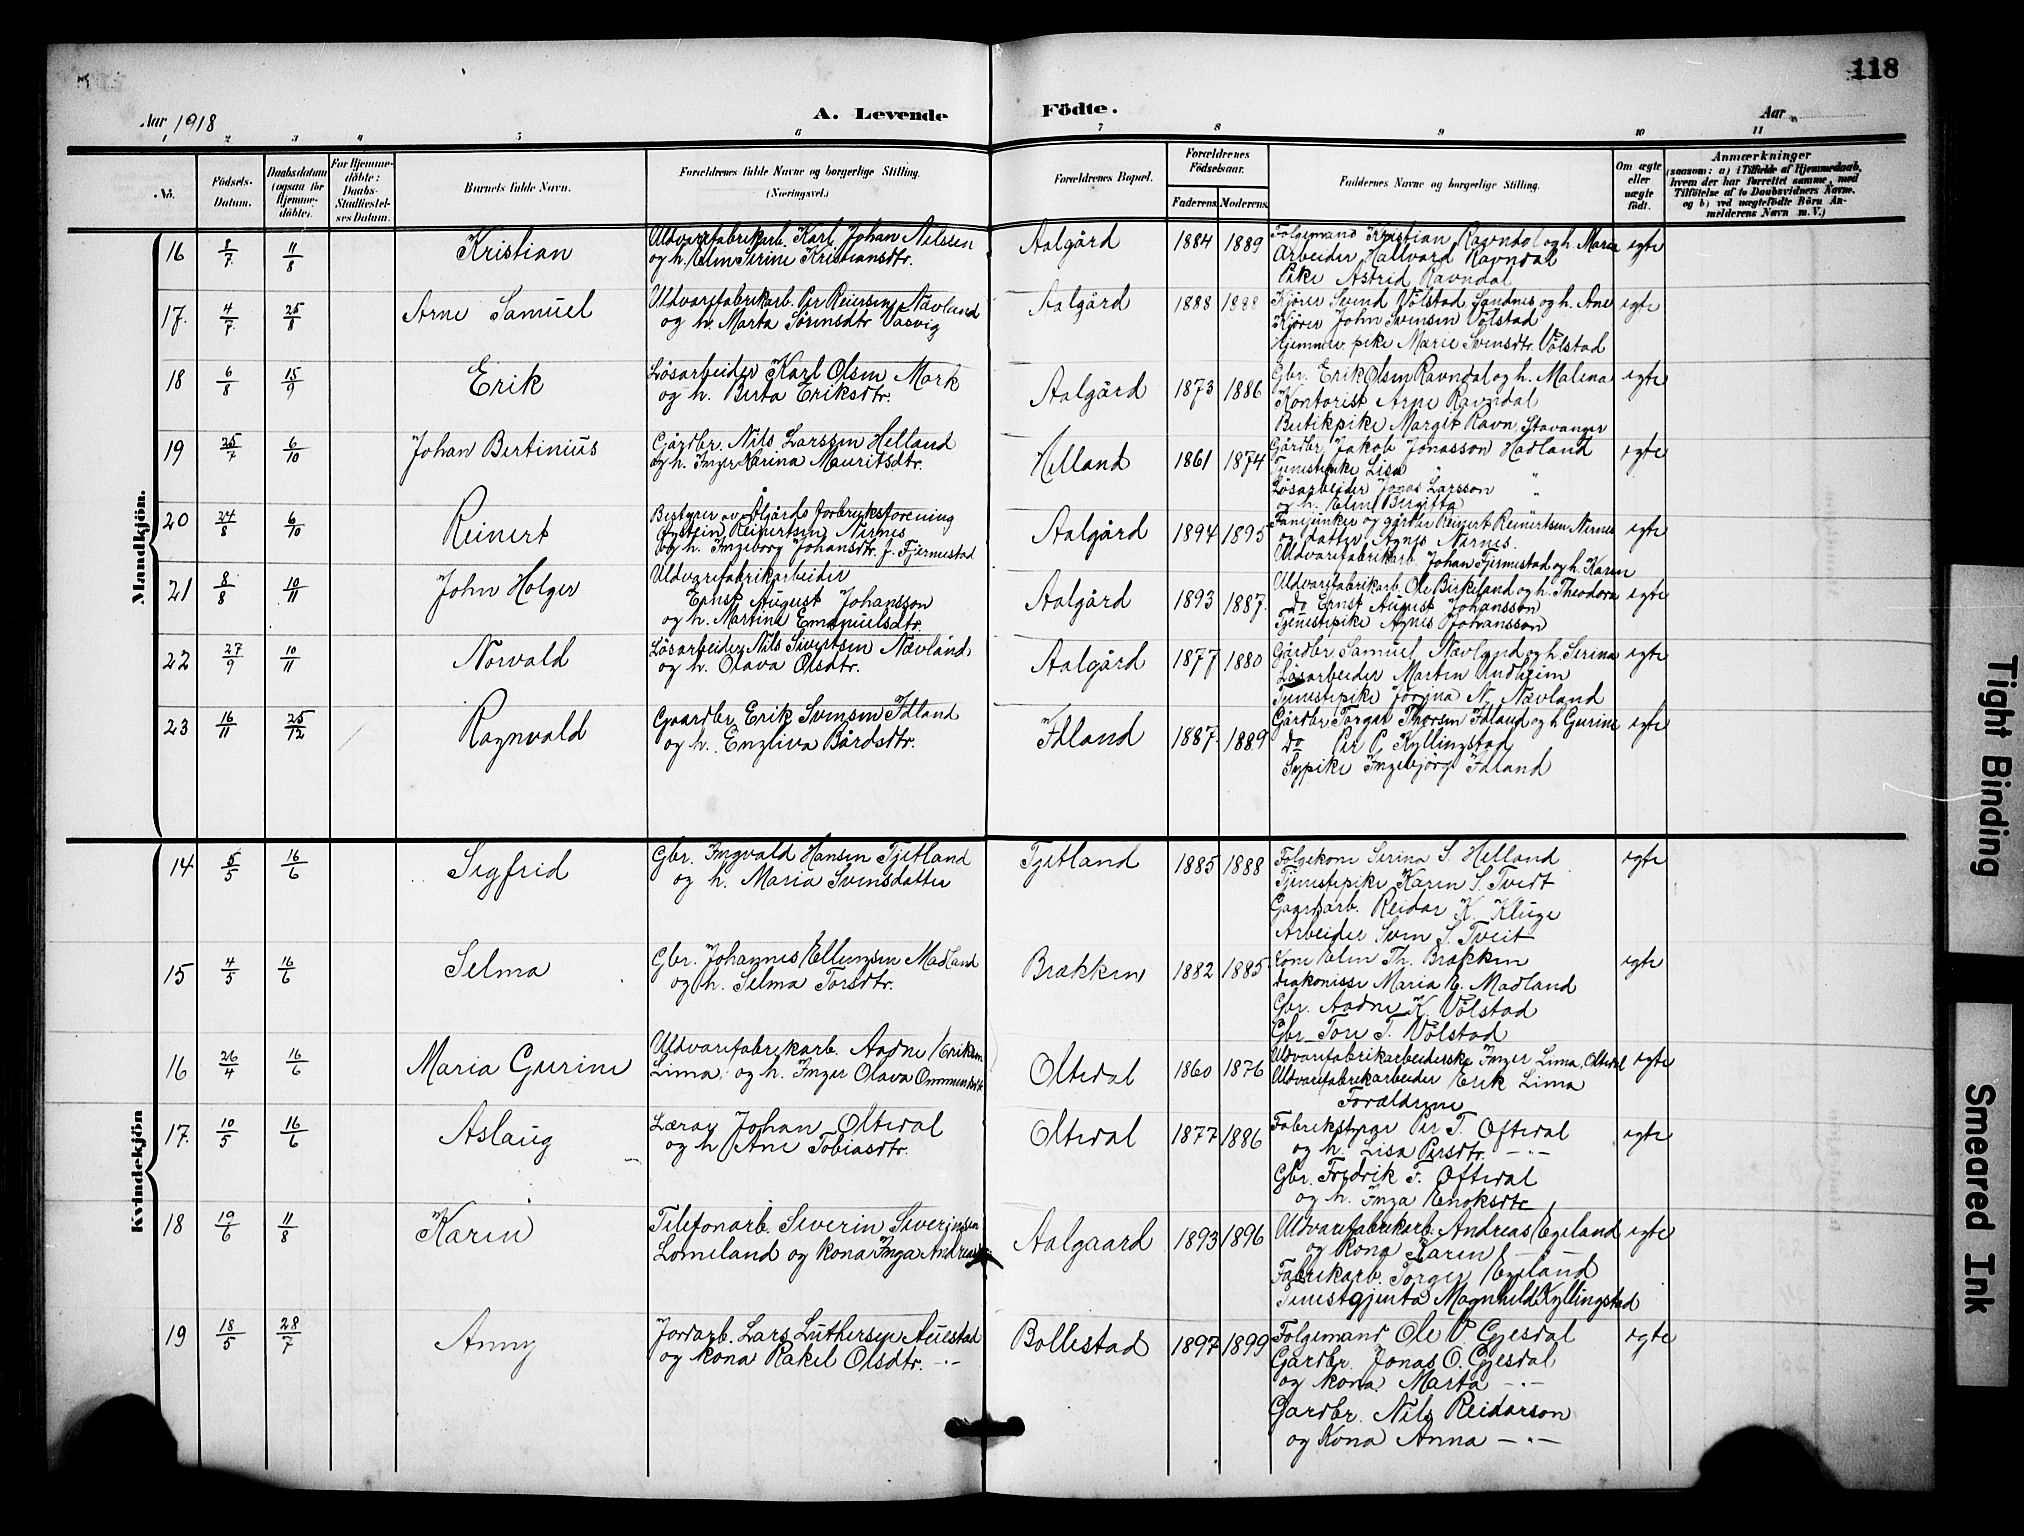 118
Aar 1918
A. Levende
Födte.
Aar
1 2 3 4 5 6 7 8 9 10 11
No.
Födsels-
Datum.
Daabsdatum
(ogsaa for
Hjemme-
döbte).
For Hjemme-
döbte:
Daabs-
Stadfæstel-
ses Datum.
Barnets fulde Navn.
Forældrenes fulde Navne og borgerlige Stilling.
(Næringsvei.)
Forældrenes Bopæl.
Forældrenes
Födselsaar.
Faderens. Moderens.
Faddernes Navne og borgerlige Stilling.
Om ægte
eller
uægte
födt.
Anmærkninger
(saasom: a) i Tilfælde af Hjemmedaab,
hvem der har forrettet samme, med
Tilföielse af to Daabsvidners Navne,
og b) ved uægtefödte Börn An-
melderens Navn m. V.)
Mandkjön.
16 8/7 11/8 Kristian
Uldvarefabrikarb. Karl Johan Nilssen
og h. Elen Serine Kristiansdtr.
Aalgård 1884 1889
Følgemand Kristian Ravndal og h. Maria
Arbeider Hallvard Ravndal
Pike Astrid Ravndal
egte
17. 4/7 25/8 Arne Samuel
Uldvarefabrikarb. Per Reiersen Nævland
og h. Marta Sørensdtr Vasvig
Aalgård 1888 1888
Kjører Svend Vølstad Sandnes og h. Ane
Kjører John Svensen Vølstad
Hjemmev. pike Marie Svensdtr. Vølstad
egte
18 6/8 15/9 Erik
Løsarbeider Karl Olsen Mork
og h. Berta Eriksdtr.
Aalgård 1873 1886
Gbr. Erik Olsen Ravndal og h. Malena
Kontorist Arne Ravndal
Butikpike Margit Ravn, Stavanger
egte
19 25/7 6/10 Johan Bertinius
Gårdbr. Nils Larssen Helland
og h. Inger Karina Mauritsdtr.
Helland 1861 1874
Gårdbr. Jakob Jonasson Hadland
Tjenestepike Lisa "
Løsarbeider Jonas Larsson "
og h. Elen Birgitta
egte
20 24/8 6/10 Reinert
Bestyrer av Ålgårds forbruksforening
Øystein Reinertsen Nærnes
og h. Ingeborg Johansdtr. f. Fjermestad
Aalgård 1894 1895
og gårdbr Reinert Reinertsen Nærnes
og datter Agnes Nærnes.
Uldvarefabrikarb. Johan Fjermestad og h. Karen
egte
21 8/8 10/11 John Holger
Uldvarefabrikarbeider
Ernst August Johansson
og h. Martine Emanuelsdtr.
Aalgård 1893 1887.
Uldvarefabrikarb. Ole Birkeland og h. Theodora
do Ernst August Johansson
Tjenestepike Agnes Johansson
egte
22 27/9 10/11 Norvald
Løsarbeider Nils Sivertsen Nævland
og h. Olava Olsdtr.
Aalgård 1877 1880
Gårdbr. Samuel Nævland og h. Serina
Løsarbeider Martin Undheim
Tjenestepike Jorina N. Nævland
egte
23 16/11 25/12 Ragnvald
Gaardbr. Erik Svensen Idland
og h. Engliva Bårdsdtr.
Idland 1887. 1889
Gårdbr. Torger Thorsen Idland og h Gurine
do Per P. Kyllingstad
Sypike Ingebjørg Idland
egte
Kvindekjön
14 5/5 16/6 Sigfrid
Gbr. Ingvald Hansen Tjetland
og h. Maria Svensdatter
Tjetland 1885 1888
Følgekone Serina S. Helland
Tjenestepike Karen S. Tvedt
Gaardarb. Reidar K. Kluge
Arbeider Sven S. Tveit
egte
15 4/5 16/6 Selma
Gbr. Johannes Ellingsen Madland
og h. Selma Torsdtr.
Brækken 1882 1885
Kone Elen Th. Brækken
Diakonisse Maria E. Madland
Gbr. Aadne K. Vølstad
Gbr. Tore T. Vølstad
egte
16 26/4 16/6 Maria Gurine
Uldvarefabrikarb. Aadne Eriksen
Lima, og h. Inger Olava Ommundsdtr
Oltedal 1860 1876
Uldvarefabrikarbeiderske Inger Lima, Oltedal
Uldvarefabrikarbeider Erik Lima
Forældrene
egte
17. 10/5 16/6 Aslaug
Lærer Johan Oltedal
og h Ane Tobiasdtr.
Oltedal 1877 1886
Fabrikstyrer Per T. Oftedal
og h. Lisa Persdtr. —"—
Gbr. Fredrik F. Oftedal
og h. Inga Enoksdtr
egte
18 19/6 11/8 Karin
Telefonarb. Severin Severinsen
Lomeland og kona Inga Andreasdtr
Aalgaard 1893 1896
Uldvarefabrikarb. Andreas Egeland
og kona Karen —"—
Fabrikarb. Torger Egeland
Tenestgjenta Magnhild Kyllingstad
egte
19 18/5 28/7 Anny
Jordarb. Lars Luthersen Auestad
og kona Rakel Olsdtr. —"—
Bollestad 1897 1899
Følgemand Ole V Gjesdal
Gardbr. Jonas O. Gjesdal
og kona Marta —"—
Gardbr. Nils Reidarson
og Kona Anna —"—
egte
Tight Binding
Smeared Ink